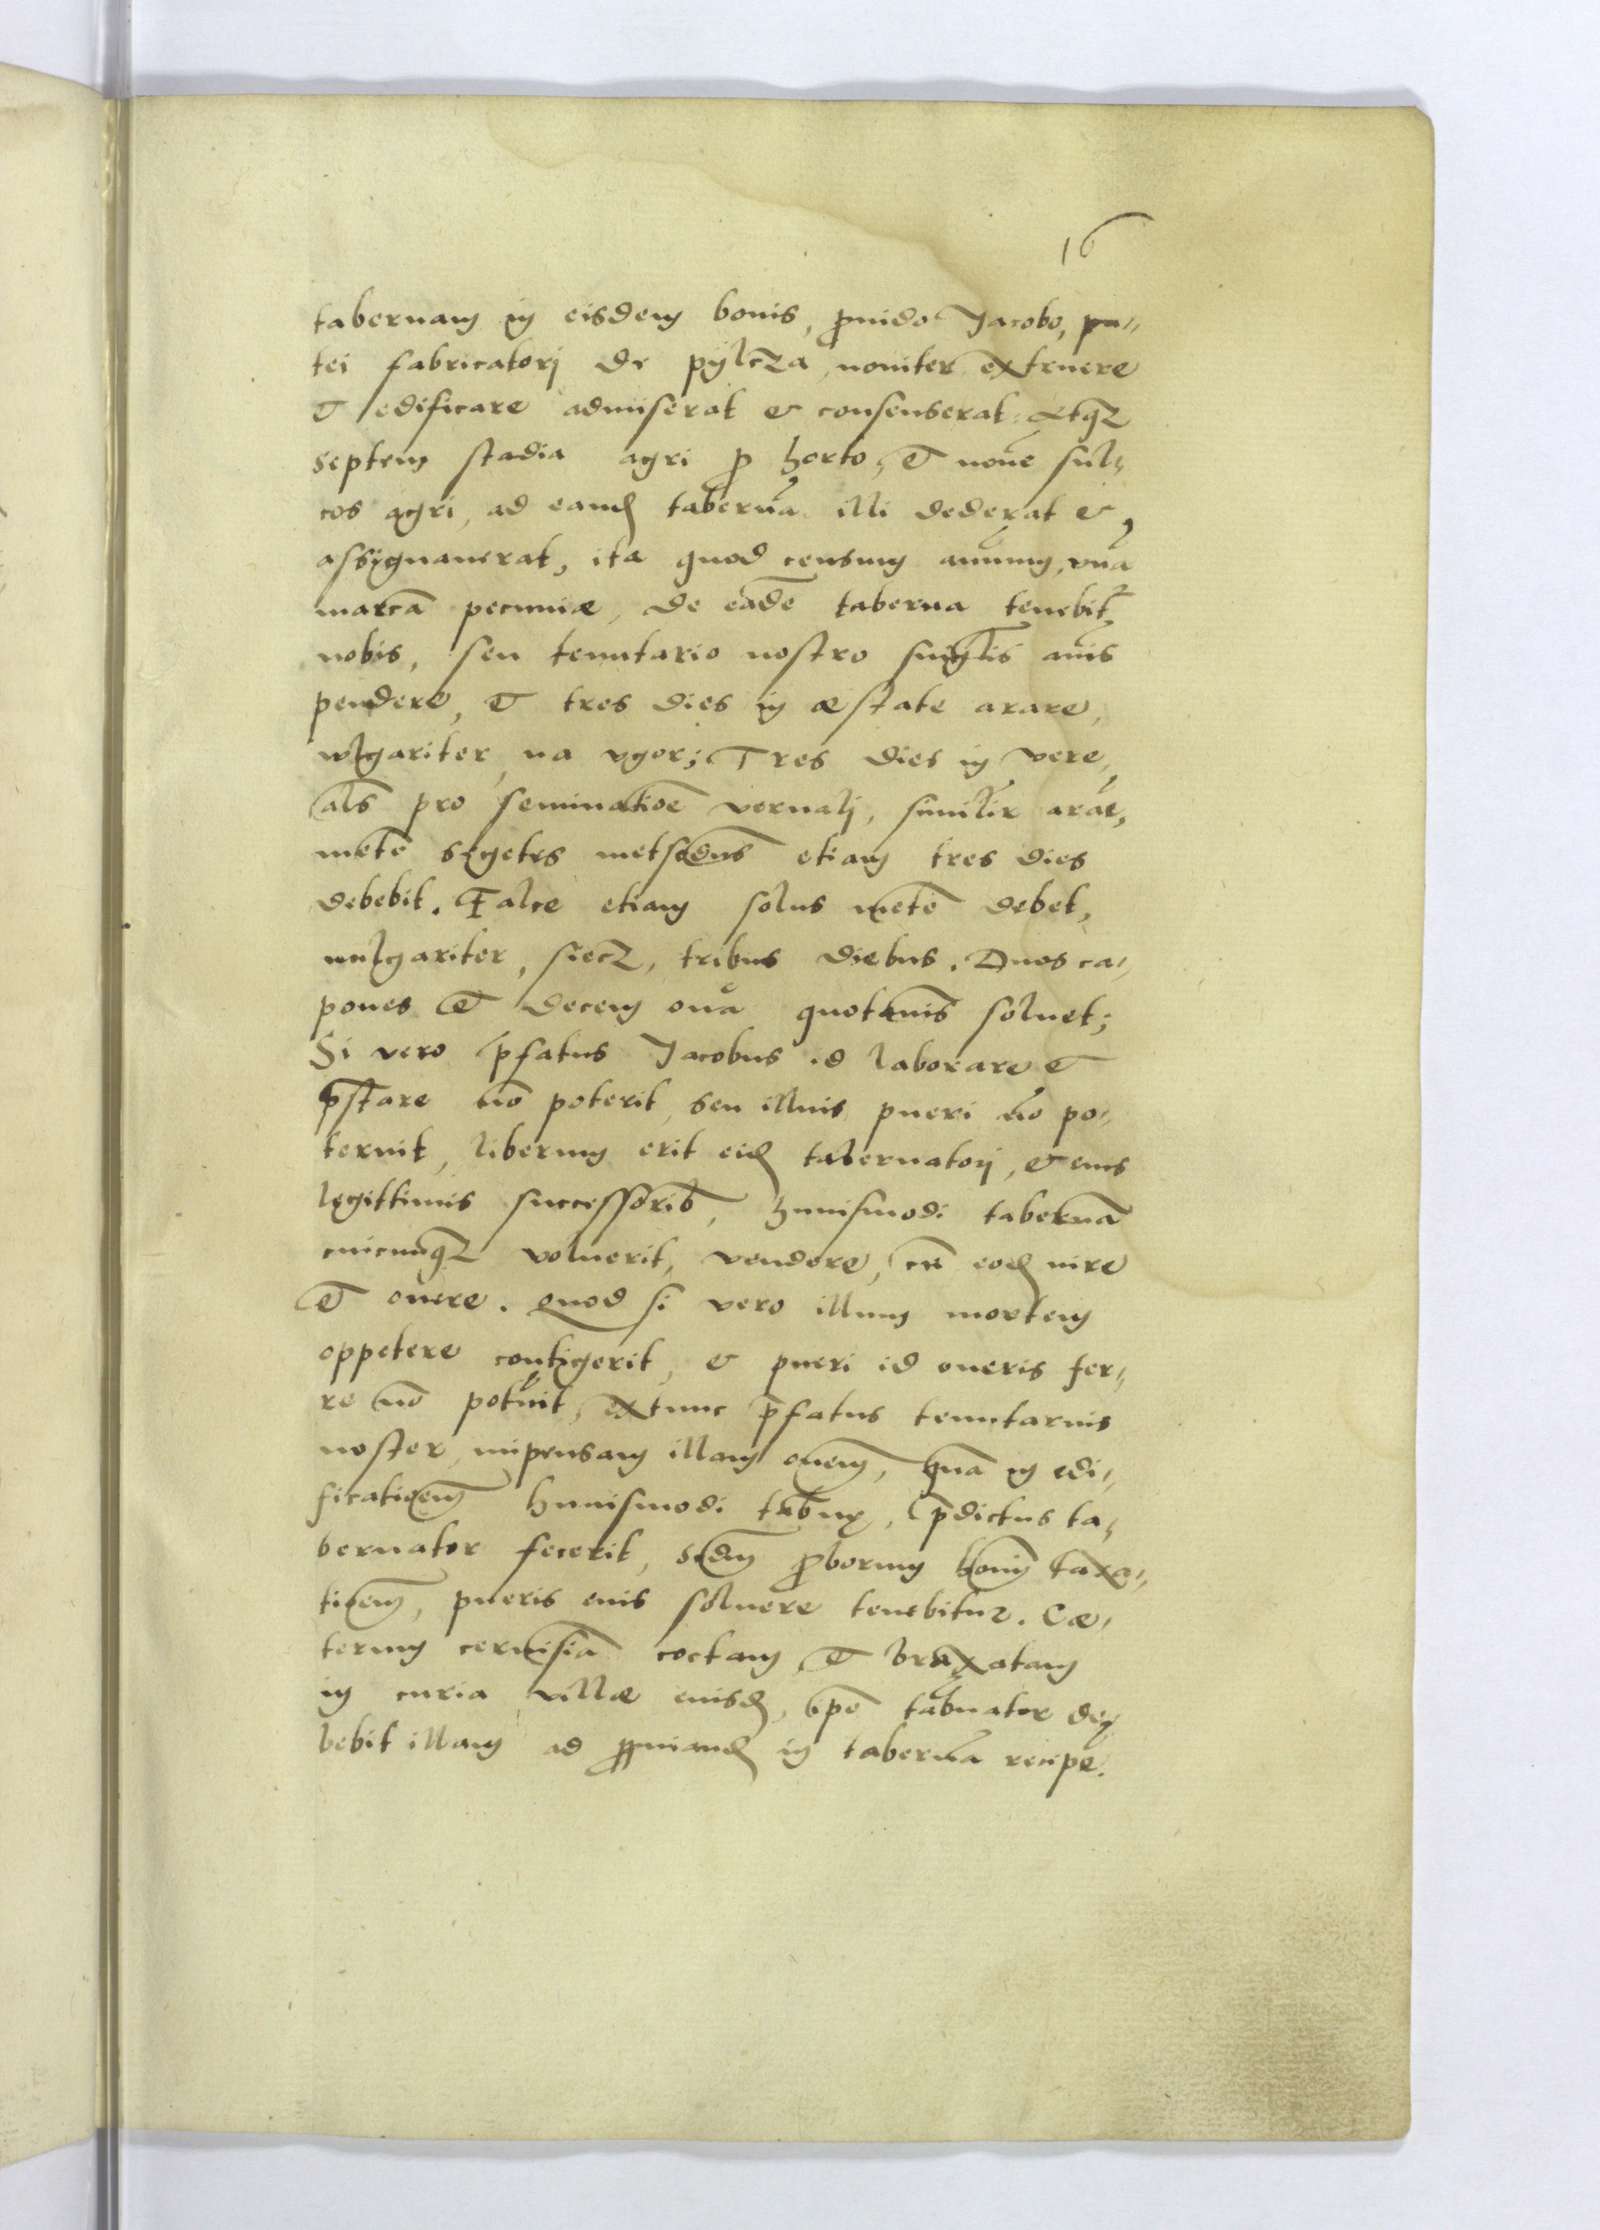 16
tabernam in eisdem bonis, ꝓuido Jacobo, pu-
tei fabricatorj de pÿlcza, nouiter extruere
et edificare admiserat & consenserat. Atqꝫ
septem stadia agri ꝓ horto, et noue̅ sul-
cos agri, ad eand tabernã illi dederat &
assÿgnauerat, ita quod censum annuum, vnã
marcã pecuniæ, de eãdẽ taberna tenebit̃
nobis, seu tenutario nostro singlis̃ annis
pendere, et tres dies in æstate arare,
wlgariter, na vgor; Tres dies in vere,
als̃ pro seminatiõe vernalj, similir̃ arar̃,
metẽ segetes metsedus̃ etiam tres dies
debebit. Falce etiam solus metẽ debet,
wulgariter, siecz, tribus diebus. Duos ca-
pones et decem oua quotannis soluet;
Si vero p̃fatus Jacobus id laborare et
p̃stare nõ poterit, seu illius pueri nõ po-
terint, liberum erit eid tabernatorj, & eius
legittimis successorib, huiusmodi tabernã
cuicunqꝫ voluerit, vendere, cũ eod iure
et onere. Quod si vero illum mortem
oppetere contigerit, & pueri id oneris fer-
re nõ potũit, extunc p̃fatus tenutarius
noster, impensam illam oñem, quã in edi-
ficatioẽm huiusmodi tab̃næ, p̃dictus ta-
bernator fecerit, scdm̃ ꝓborum hoĩm taxa-
tioẽm, pueris eius soluere tenebitur. Cæ-
terum ceruisiã coctam, et braxatam
in curia villæ eiusd, ip̃e tab̃nator de-
bebit illam ad ꝓpinand in tabernã recipe.